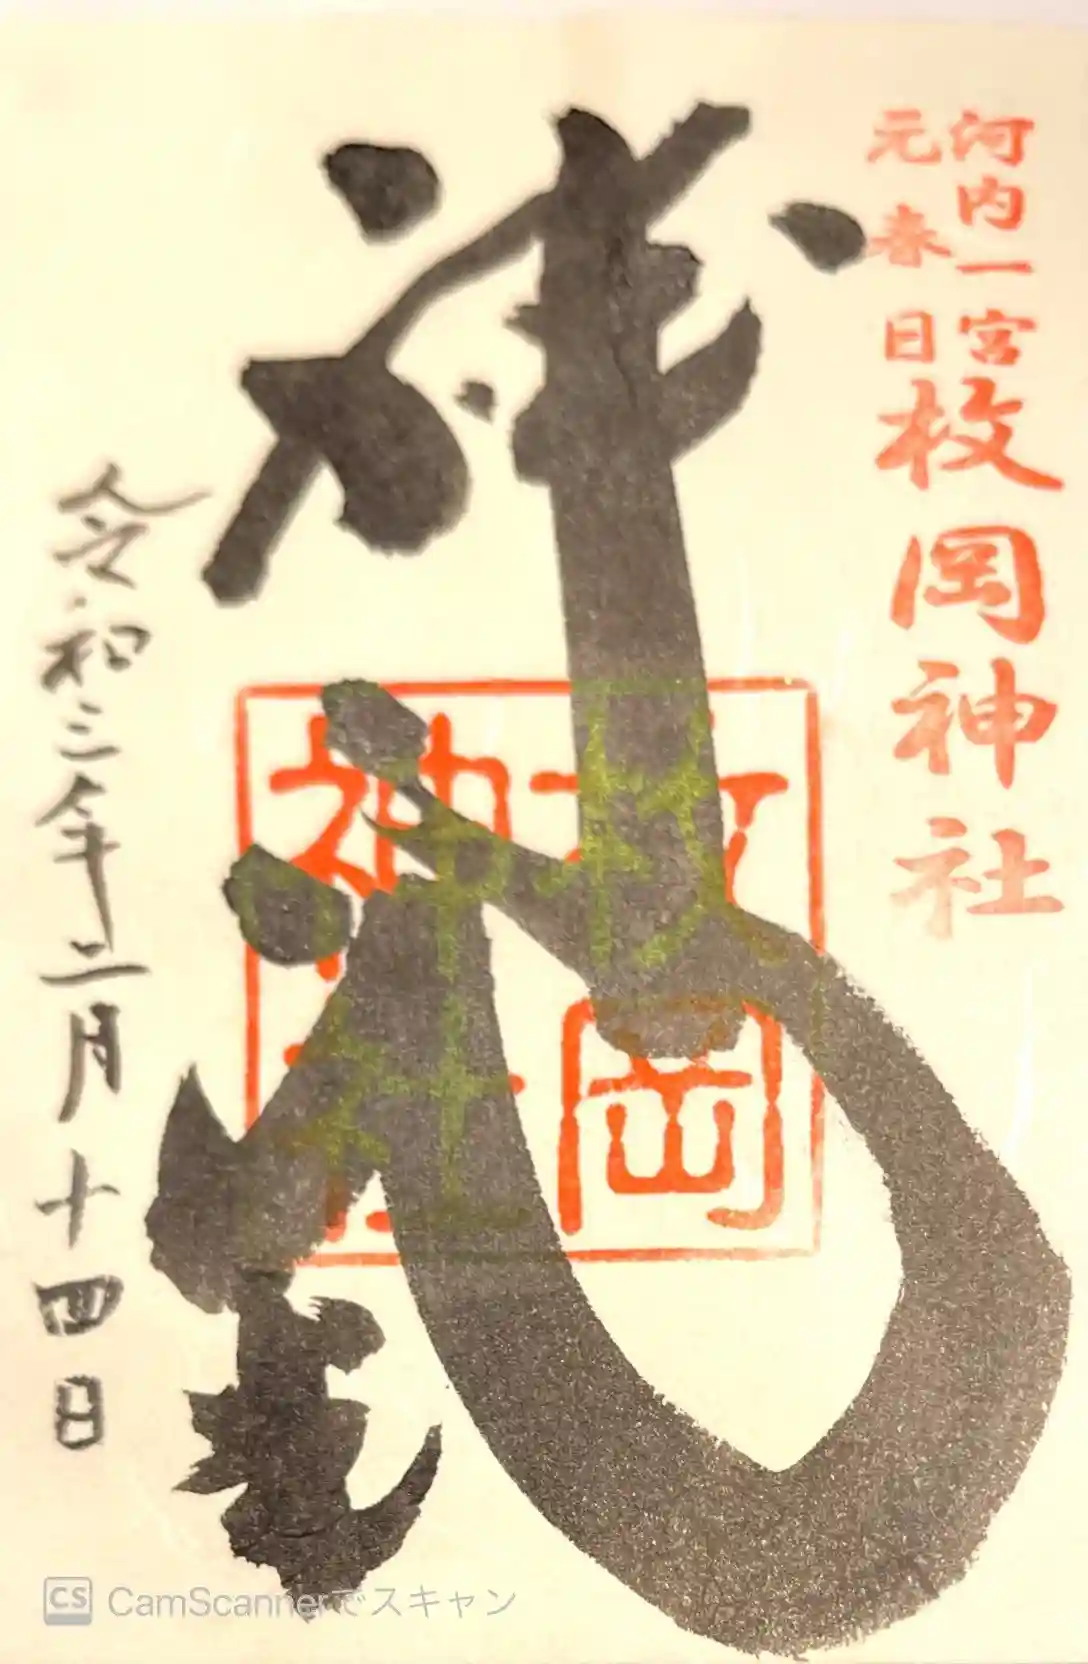 河内一宮
元春日
枚岡神社
枚岡
神社
令和三年二月十四日
CS CamScannerでスキャン